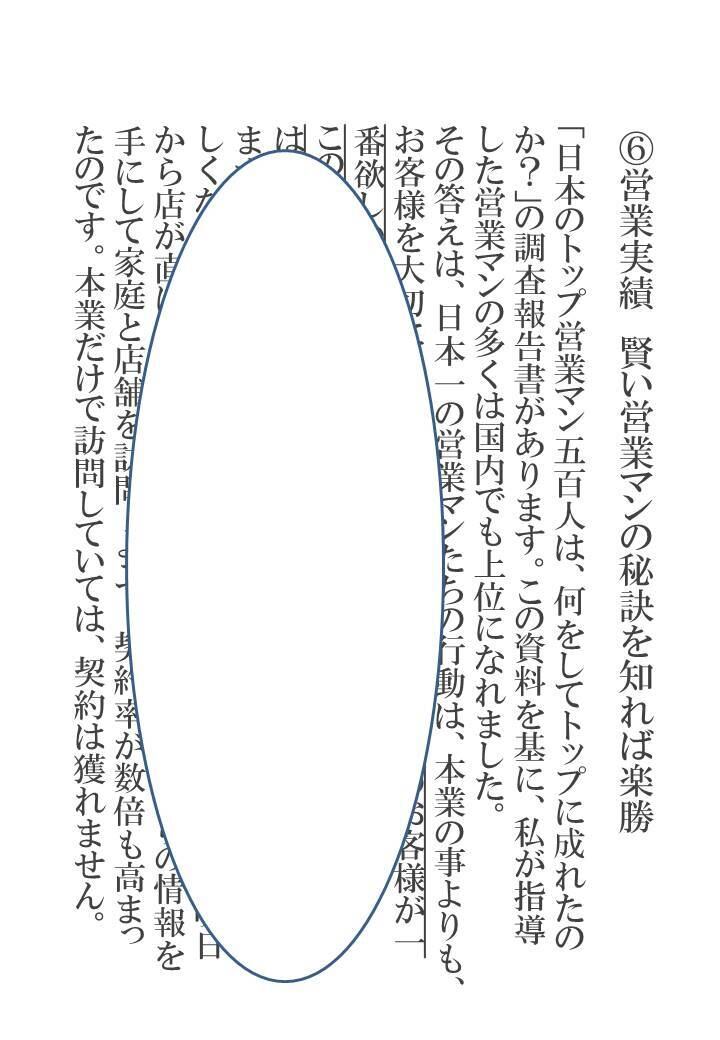 ⑥営業実績　賢い営業マンの秘訣を知れば楽勝
「日本のトップ営業マン五百人は、何をしてトップに成れたの
か？」の調査報告書があります。この資料を基に、私が指導
した営業マンの多くは国内でも上位になれました。
その答えは、日本一の営業マンたちの行動は、本業の事よりも、
お客様を大切 お客様が一
番欲し
この
は
ま
しくだ 日
から店が直 の情報を
手にして家庭と店舗を訪問 契約率が数倍も高まっ
たのです。本業だけで訪問していては、契約は獲れません。